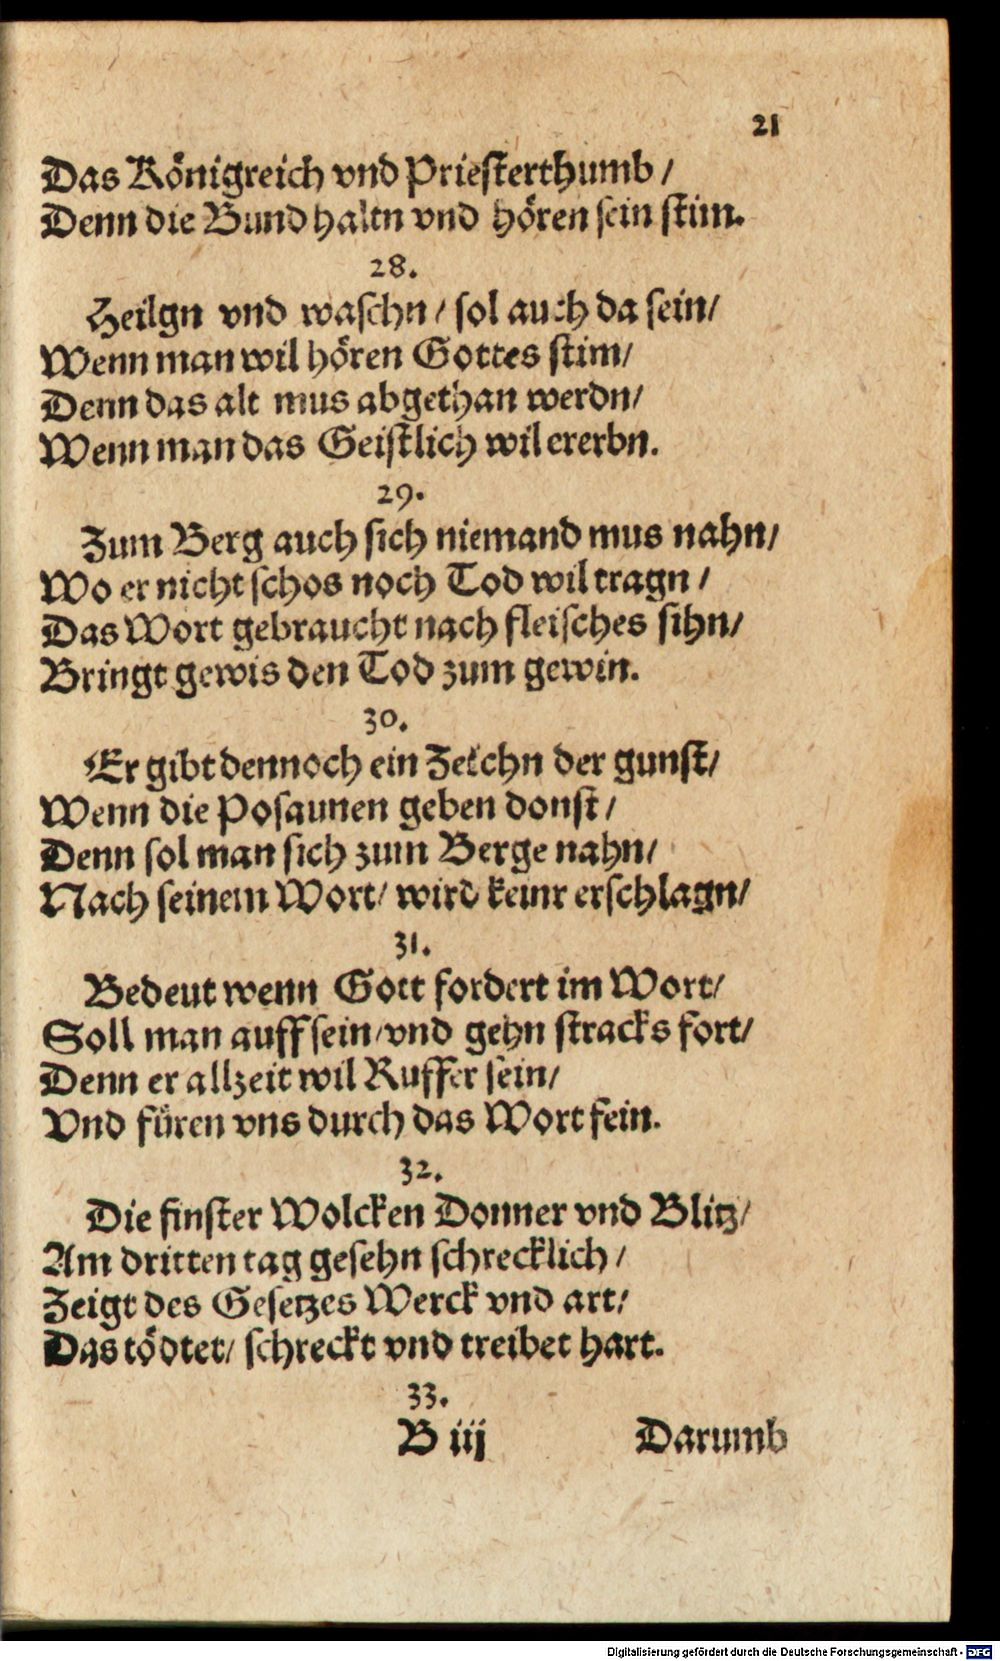 21
Das Königreich vnd Priesterthumb /
Denn die Bund haltn vnd hören sein stim.
28.
Heilgn vnd waschn / sol auch da sein /
Wenn man wil hören Gottes stim /
Denn das alt mus abgethan werdn /
Wenn man das Geistlich wil ererbn.
29.
Zum Berg auch sich niemand mus nahn /
Wo er nicht schos noch Tod wil tragn /
Das Wort gebraucht nach fleisches sihn /
Bringt gewis den Tod zum gewin.
30.
Er gibt dennoch ein Zeichn der gunst /
Wenn die Posaunen geben donst /
Denn sol man sich zum Berge nahn /
Nach seinem Wort / wird keinr erschlagn /
31.
Bedeut wenn Gott fordert im Wort /
Soll man auff sein / vnd gehn stracks fort /
Denn er allzeit wil Ruffer sein /
Vnd füren vns durch das Wort fein.
32.
Die finster Wolcken Donner vnd Blitz /
Am dritten tag gesehn schrecklich /
Zeigt des Gesetzes Werck vnd art /
Das tödtet / schreckt vnd treibet hart.
33.
B iij Darumb
Digitalisierung gefördert durch die Deutsche Forschungsgemeinschaft - DFG